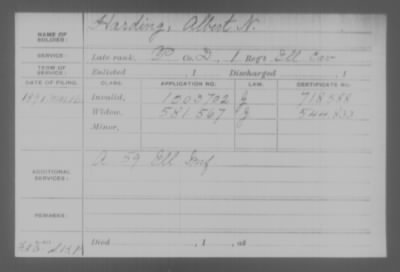 NAME OF SOLDIER: Harding, Albert N.
SERVICE: Late rank, Co. D, 1 Reg't Ill Cav
TERM OF SERVICE: Enlisted , 1 Discharged , 1
DATE OF FILING. CLASS. APPLICATION NO. LAW. CERTIFICATE NO.
Invalid, 1203702
Widow, 581567
Minor,
ADDITIONAL SERVICES: A 59 Ill Inf
REMARKS:
Died , 1 , at